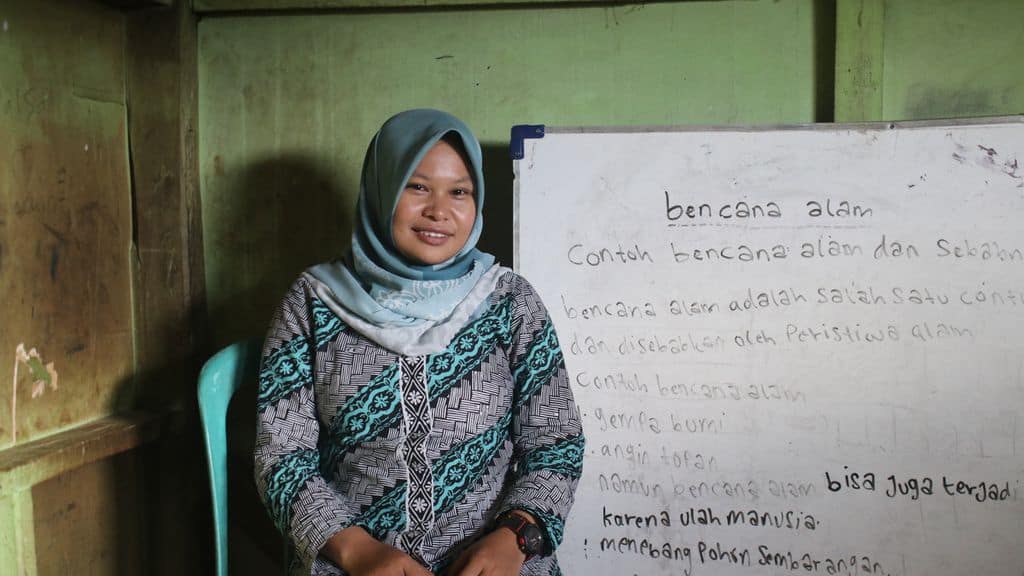 bencana alam
Contoh bencana alam dan Sebabn
bencana alam adalah salah satu conto
dan disebabkan oleh Peristiwa alam
Contoh bencana alam
. gempa bumi
. angin tofan
namun bencana alam bisa juga terjadi
karena ulah manusia.
! menebang Pohon Sembarangan